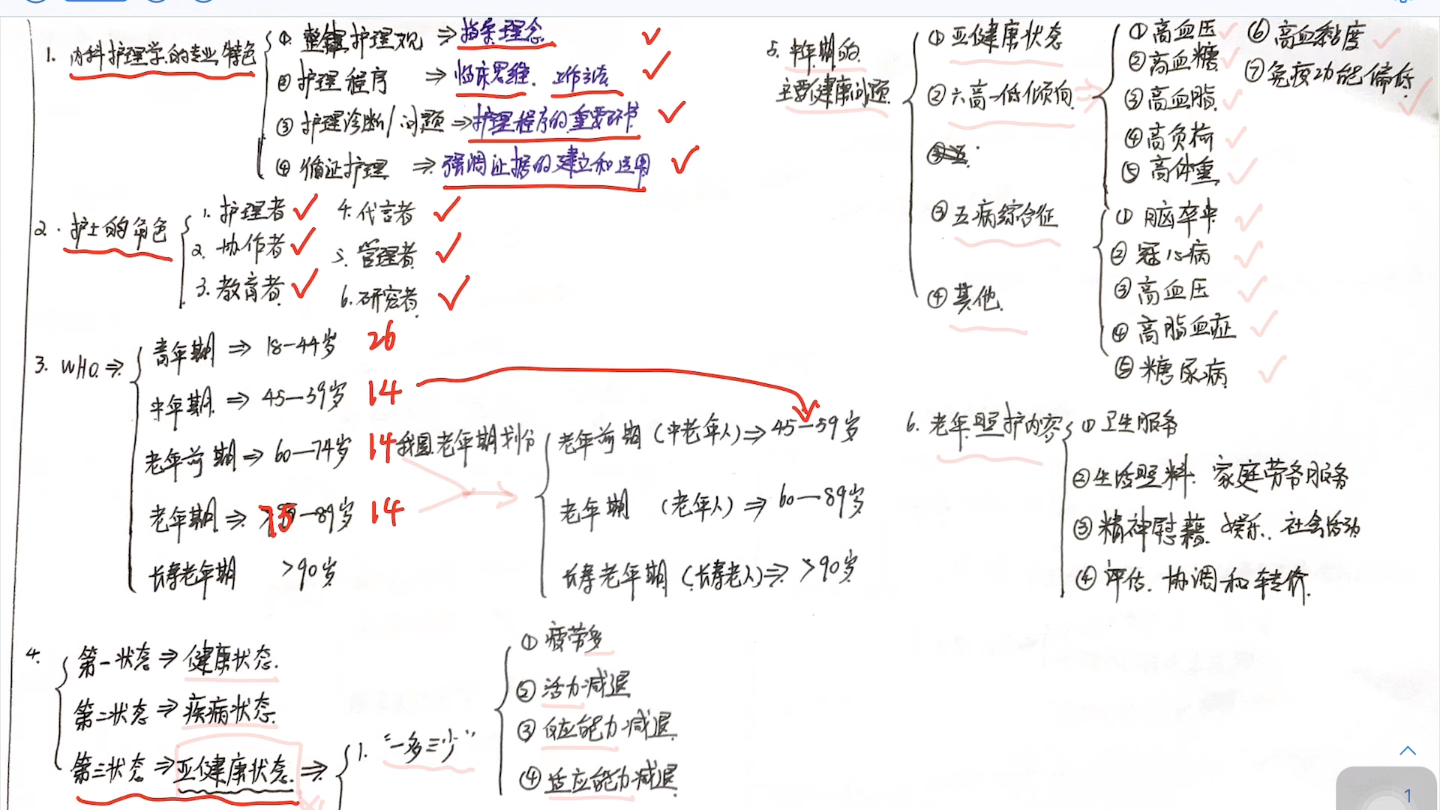 1. 内科护理学的专业特色
① 整体护理观 ⇒ 指导理念 ✓
② 护理程序 ⇒ 临床思维、工作方法 ✓
③ 护理诊断/问题 ⇒ 护理程序的重要环节 ✓
④ 循证护理 ⇒ 强调证据的建立和运用 ✓
2. 护士的角色
1. 护理者 ✓ 4. 代言者 ✓
2. 协作者 ✓ 5. 管理者 ✓
3. 教育者 ✓ 6. 研究者 ✓
3. WHO ⇒
青年期 ⇒ 18-44岁 26
中年期 ⇒ 45-59岁 14
老年前期 ⇒ 60-74岁 14
老年期 ⇒ 75-89岁 14
长寿老年期 >90岁
我国老年期划分
老年前期 (中老年人) ⇒ 45-59岁
老年期 (老年人) ⇒ 60-89岁
长寿老年期 (长寿老人) ⇒ >90岁
4.
第一状态 ⇒ 健康状态.
第二状态 ⇒ 疾病状态.
第三状态 ⇒ 亚健康状态. ⇒
1. “一多三少”
① 疲劳多
② 活力减退
③ 反应能力减退.
④ 适应能力减退.
5. 中年期的
主要健康问题.
① 亚健康状态
② 六高一低倾向 ⇒
① 高血压 ✓ ⑥ 高血黏度 ✓
② 高血糖 ✓ ⑦ 免疫功能偏低 ✓
③ 高血脂 ✓
④ 高负荷 ✓
⑤ 高体重 ✓
③ 五病综合征
① 脑卒中 ✓
② 冠心病 ✓
③ 高血压 ✓
④ 高脂血症 ✓
⑤ 糖尿病 ✓
④ 其他.
6. 老年照护内容
① 卫生服务
② 生活照料、家庭劳务服务
③ 精神慰藉、娱乐、社会活动
④ 评估、协调和转介.
1